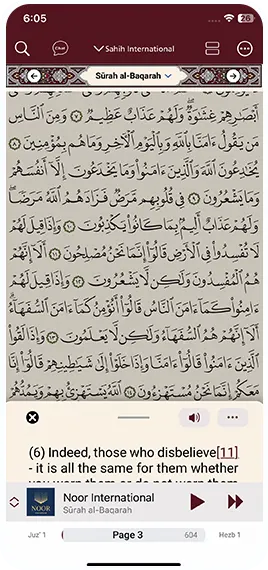 6:05
26
Chat
Sahih International
Sūrah al-Baqarah
أَبْصَٰرِهِمْ غِشَٰوَةٌ وَلَهُمْ عَذَابٌ عَظِيمٌ ٧ وَمِنَ ٱلنَّاسِ
مَن يَقُولُ ءَامَنَّا بِٱللَّهِ وَبِٱلْيَوْمِ ٱلْءَاخِرِ وَمَا هُم بِمُؤْمِنِينَ ٨
يُخَٰدِعُونَ ٱللَّهَ وَٱلَّذِينَ ءَامَنُوا۟ وَمَا يَخْدَعُونَ إِلَّآ أَنفُسَهُمْ
وَمَا يَشْعُرُونَ ٩ فِى قُلُوبِهِم مَّرَضٌ فَزَادَهُمُ ٱللَّهُ مَرَضًا
وَلَهُمْ عَذَابٌ أَلِيمٌۢ بِمَا كَانُوا۟ يَكْذِبُونَ ١٠ وَإِذَا قِيلَ لَهُمْ
لَا تُفْسِدُوا۟ فِى ٱلْأَرْضِ قَالُوٓا۟ إِنَّمَا نَحْنُ مُصْلِحُونَ ١١ أَلَآ إِنَّهُمْ
هُمُ ٱلْمُفْسِدُونَ وَلَٰكِن لَّا يَشْعُرُونَ ١٢ وَإِذَا قِيلَ لَهُمْ
ءَامِنُوا۟ كَمَآ ءَامَنَ ٱلنَّاسُ قَالُوٓا۟ أَنُؤْمِنُ كَمَآ ءَامَنَ ٱلسُّفَهَآءُ
أَلَآ إِنَّهُمْ هُمُ ٱلسُّفَهَآءُ وَلَٰكِن لَّا يَعْلَمُونَ ١٣ وَإِذَا لَقُوا۟
ٱلَّذِينَ ءَامَنُوا۟ قَالُوٓا۟ ءَامَنَّا وَإِذَا خَلَوْا۟ إِلَىٰ شَيَٰطِينِهِمْ قَالُوٓا۟ إِنَّا
مَعَكُمْ إِنَّمَا نَحْنُ مُسْتَهْزِءُونَ ١٤ ٱللَّهُ يَسْتَهْزِئُ بِهِمْ وَيَمُدُّهُمْ
(6) Indeed, those who disbelieve[11]
- it is all the same for them whether
you warn them or do not warn them
NOOR
Noor International
Sūrah al-Baqarah
Juz' 1
Page 3
604
Hezb 1